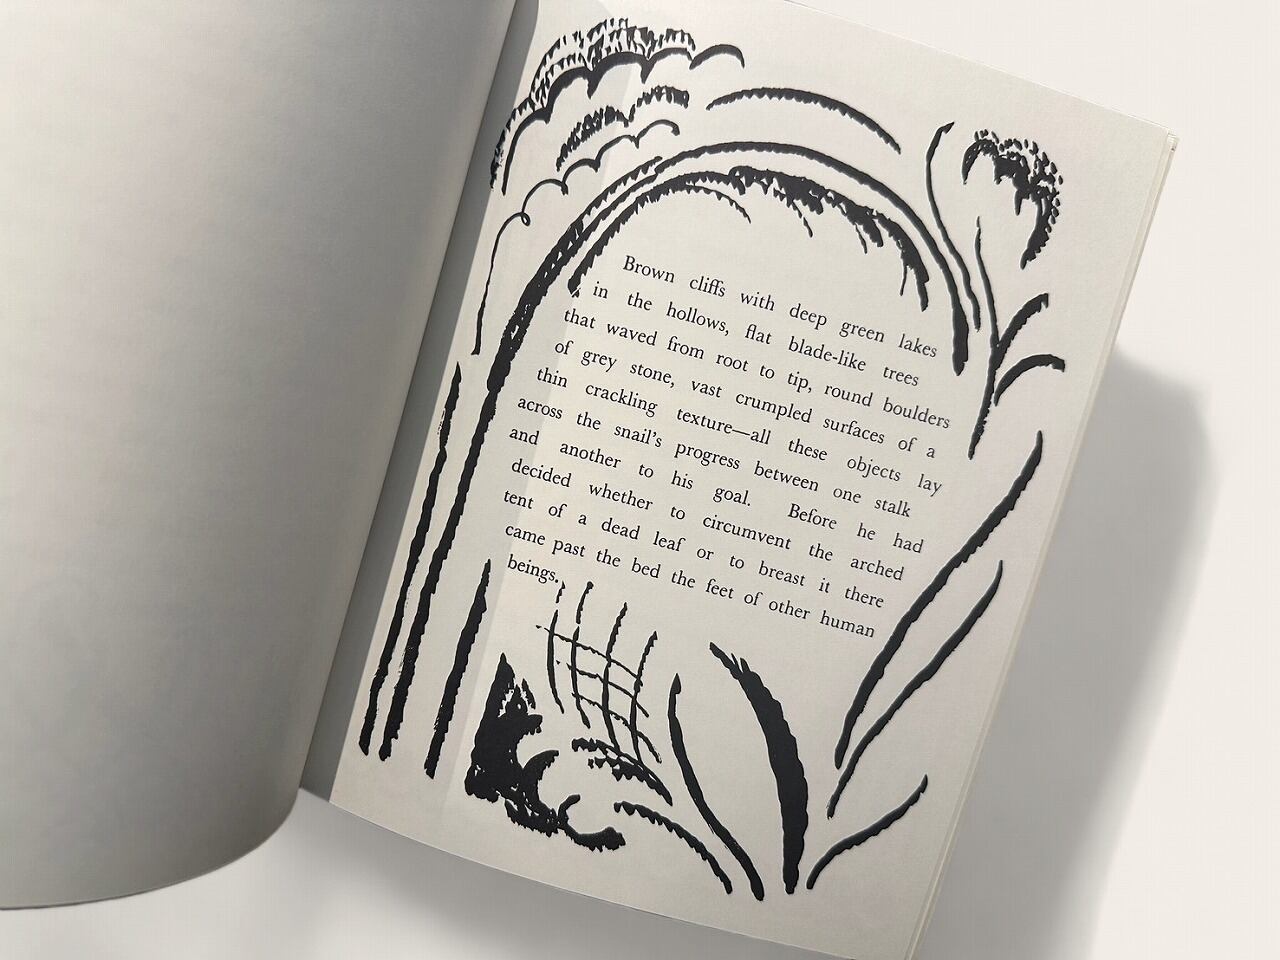 Brown cliffs with deep green lakes
in the hollows, flat blade-like trees
that waved from root to tip, round boulders
of grey stone, vast crumpled surfaces of a
thin crackling texture—all these objects lay
across the snail's progress between one stalk
and another to his goal. Before he had
decided whether to circumvent the arched
tent of a dead leaf or to breast it there
came past the bed the feet of other human
beings.